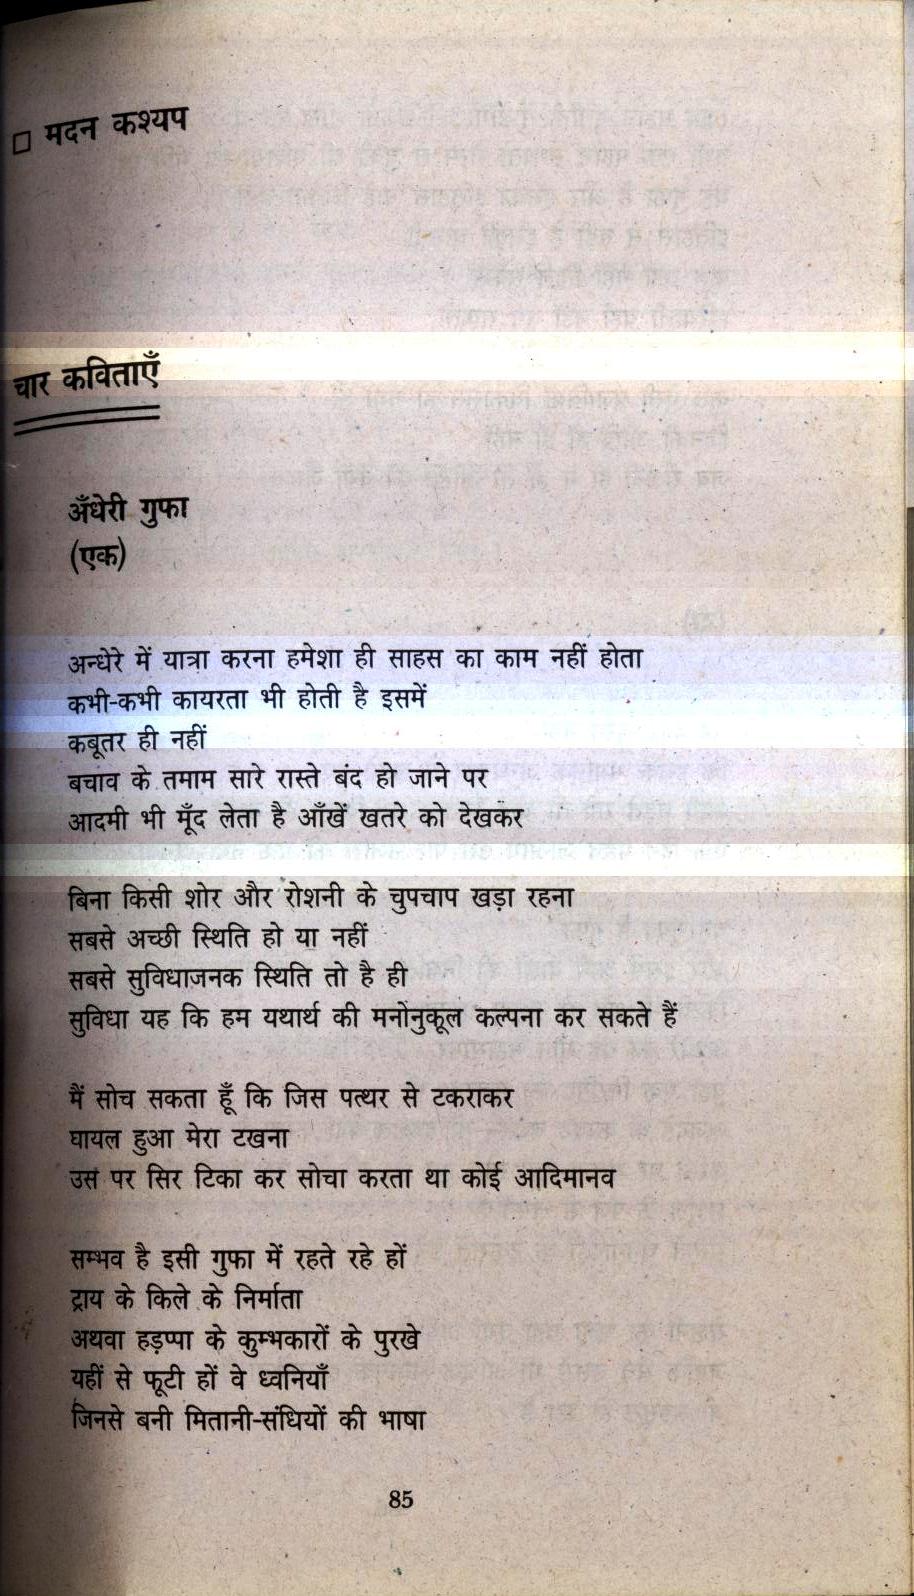 □ मदन कश्यप
चार कविताएँ
अँधेरी गुफा
(एक)
अन्धेरे में यात्रा करना हमेशा ही साहस का काम नहीं होता
कभी-कभी कायरता भी होती है इसमें
कबूतर ही नहीं
बचाव के तमाम सारे रास्ते बंद हो जाने पर
आदमी भी मूँद लेता है आँखें खतरे को देखकर
बिना किसी शोर और रोशनी के चुपचाप खड़ा रहना
सबसे अच्छी स्थिति हो या नहीं
सबसे सुविधाजनक स्थिति तो है ही
सुविधा यह कि हम यथार्थ की मनोनुकूल कल्पना कर सकते हैं
मैं सोच सकता हूँ कि जिस पत्थर से टकराकर
घायल हुआ मेरा टखना
उस पर सिर टिका कर सोचा करता था कोई आदिमानव
सम्भव है इसी गुफा में रहते रहे हों
ट्राय के किले के निर्माता
अथवा हड़प्पा के कुम्भकारों के पुरखे
यहीं से फूटी हों वे ध्वनियाँ
जिनसे बनी मितानी-संधियों की भाषा
85